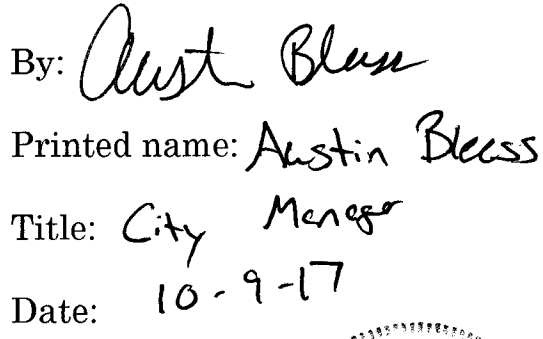 By: Austin Bleess
Printed name: Austin Bleess
Title: City Manager
Date: 10-9-17